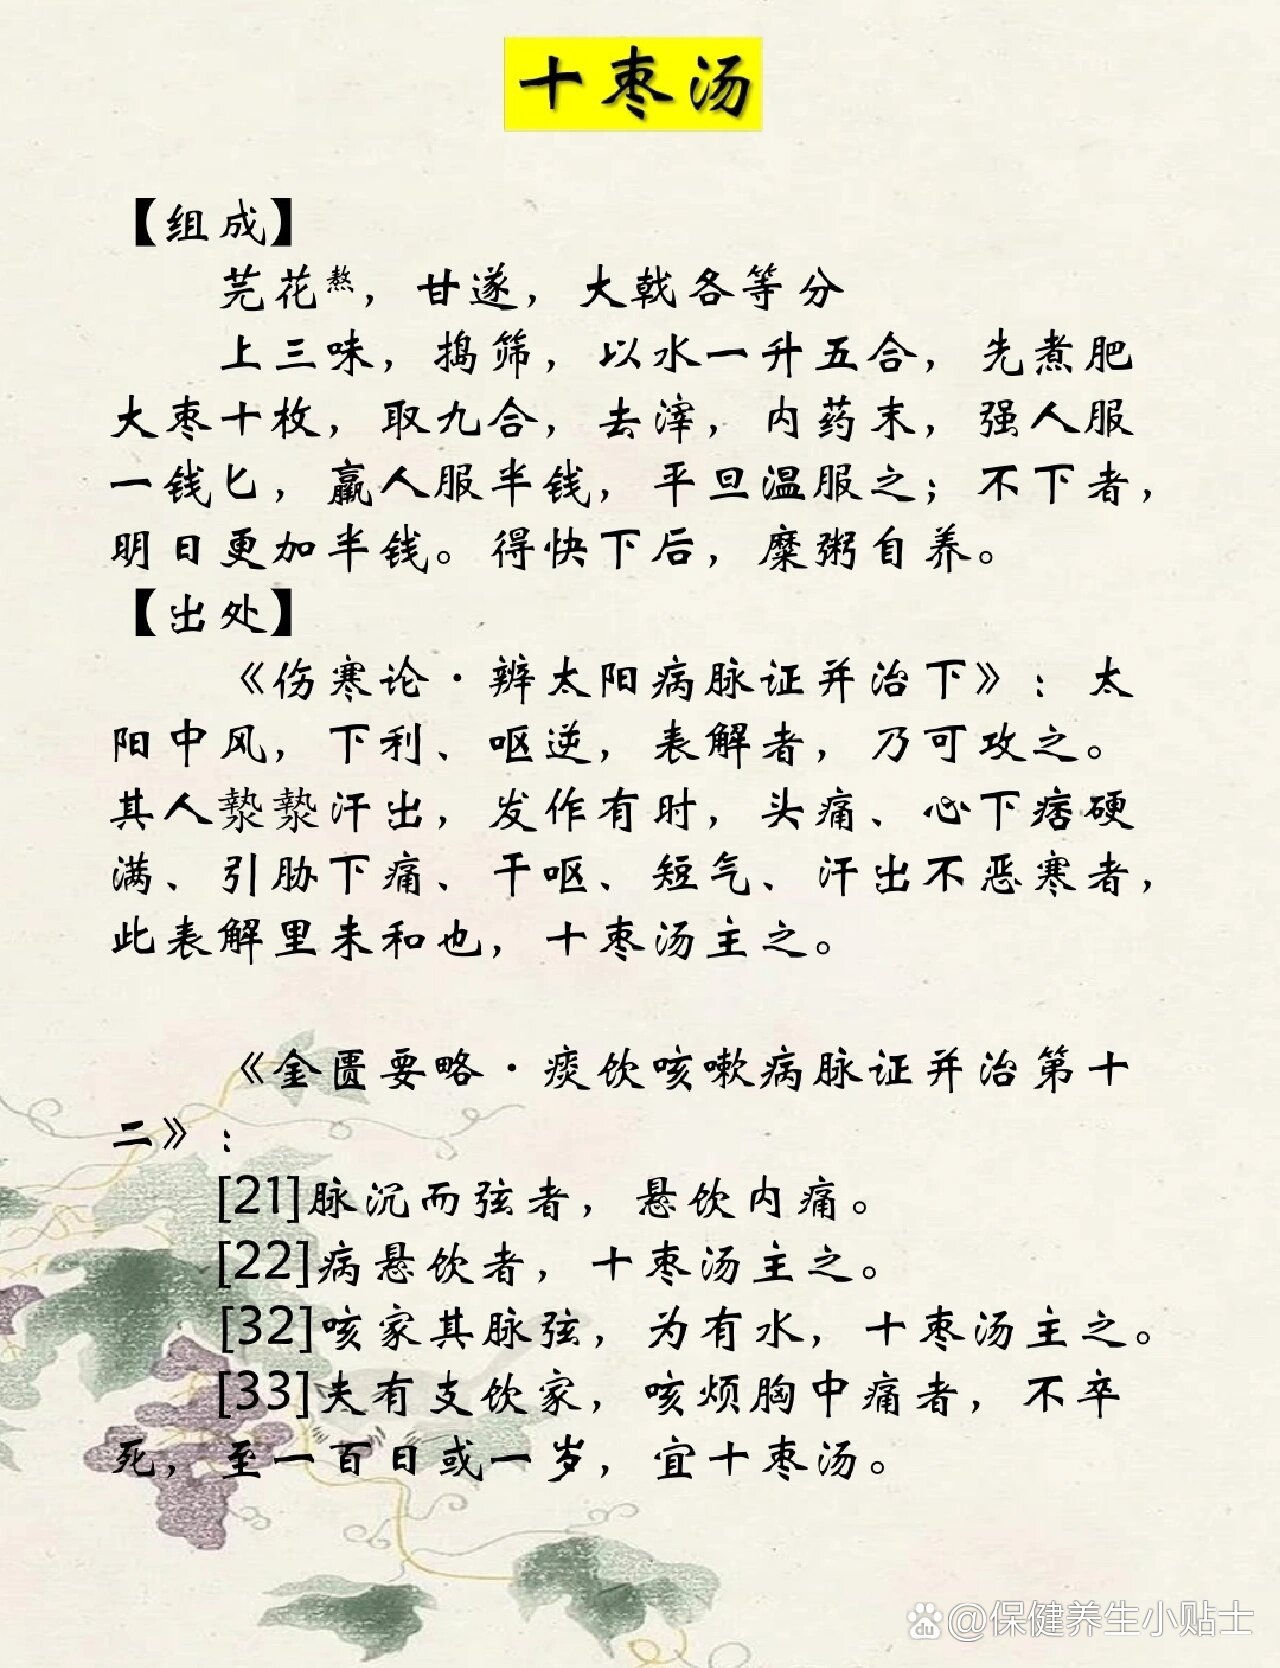 十枣汤
【组成】
芫花熬，甘遂，大戟各等分
上三味，捣筛，以水一升五合，先煮肥
大枣十枚，取九合，去滓，内药末，强人服
一钱匕，羸人服半钱，平旦温服之；不下者，
明日更加半钱。得快下后，糜粥自养。
【出处】
《伤寒论·辨太阳病脉证并治下》：太
阳中风，下利、呕逆，表解者，乃可攻之。
其人漐漐汗出，发作有时，头痛、心下痞硬
满、引胁下痛、干呕、短气、汗出不恶寒者，
此表解里未和也，十枣汤主之。
《金匮要略·痰饮咳嗽病脉证并治第十
二》：
[21]脉沉而弦者，悬饮内痛。
[22]病悬饮者，十枣汤主之。
[32]咳家其脉弦，为有水，十枣汤主之。
[33]夫有支饮家，咳烦胸中痛者，不卒
死，至一百日或一岁，宜十枣汤。
@保健养生小贴士